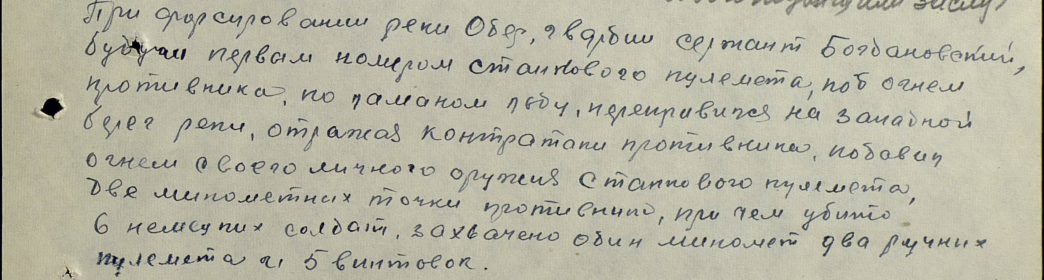 При форсировании реки Одер, гвардии сержант Богдановский,
будучи первым номером станкового пулемета, под огнем
противника, по ламаном льду, переправился на западной
берег реки, отражая контратаки противника, подавил
огнем своего личного оружия станкового пулемета,
две минометных точки противника, при чем убито
6 немецких солдат, захвачено один миномет два ручных
пулемета и 5 винтовок.